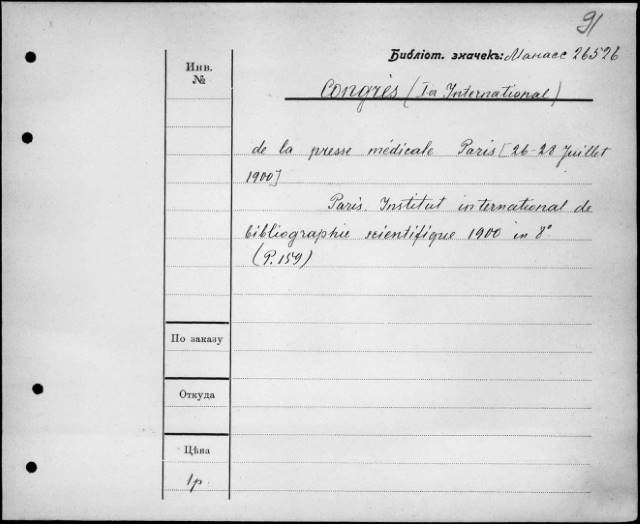 91
Библіот. значекъ: Манасс 26526
Инв.
№
Congrès (Ier International)
de la presse médicale Paris [26-28 Juillet
1900]
Paris. Institut international de
bibliographie scientifique 1900 in 8°
(P. 159)
По заказу
Откуда
Цѣна
1 р.